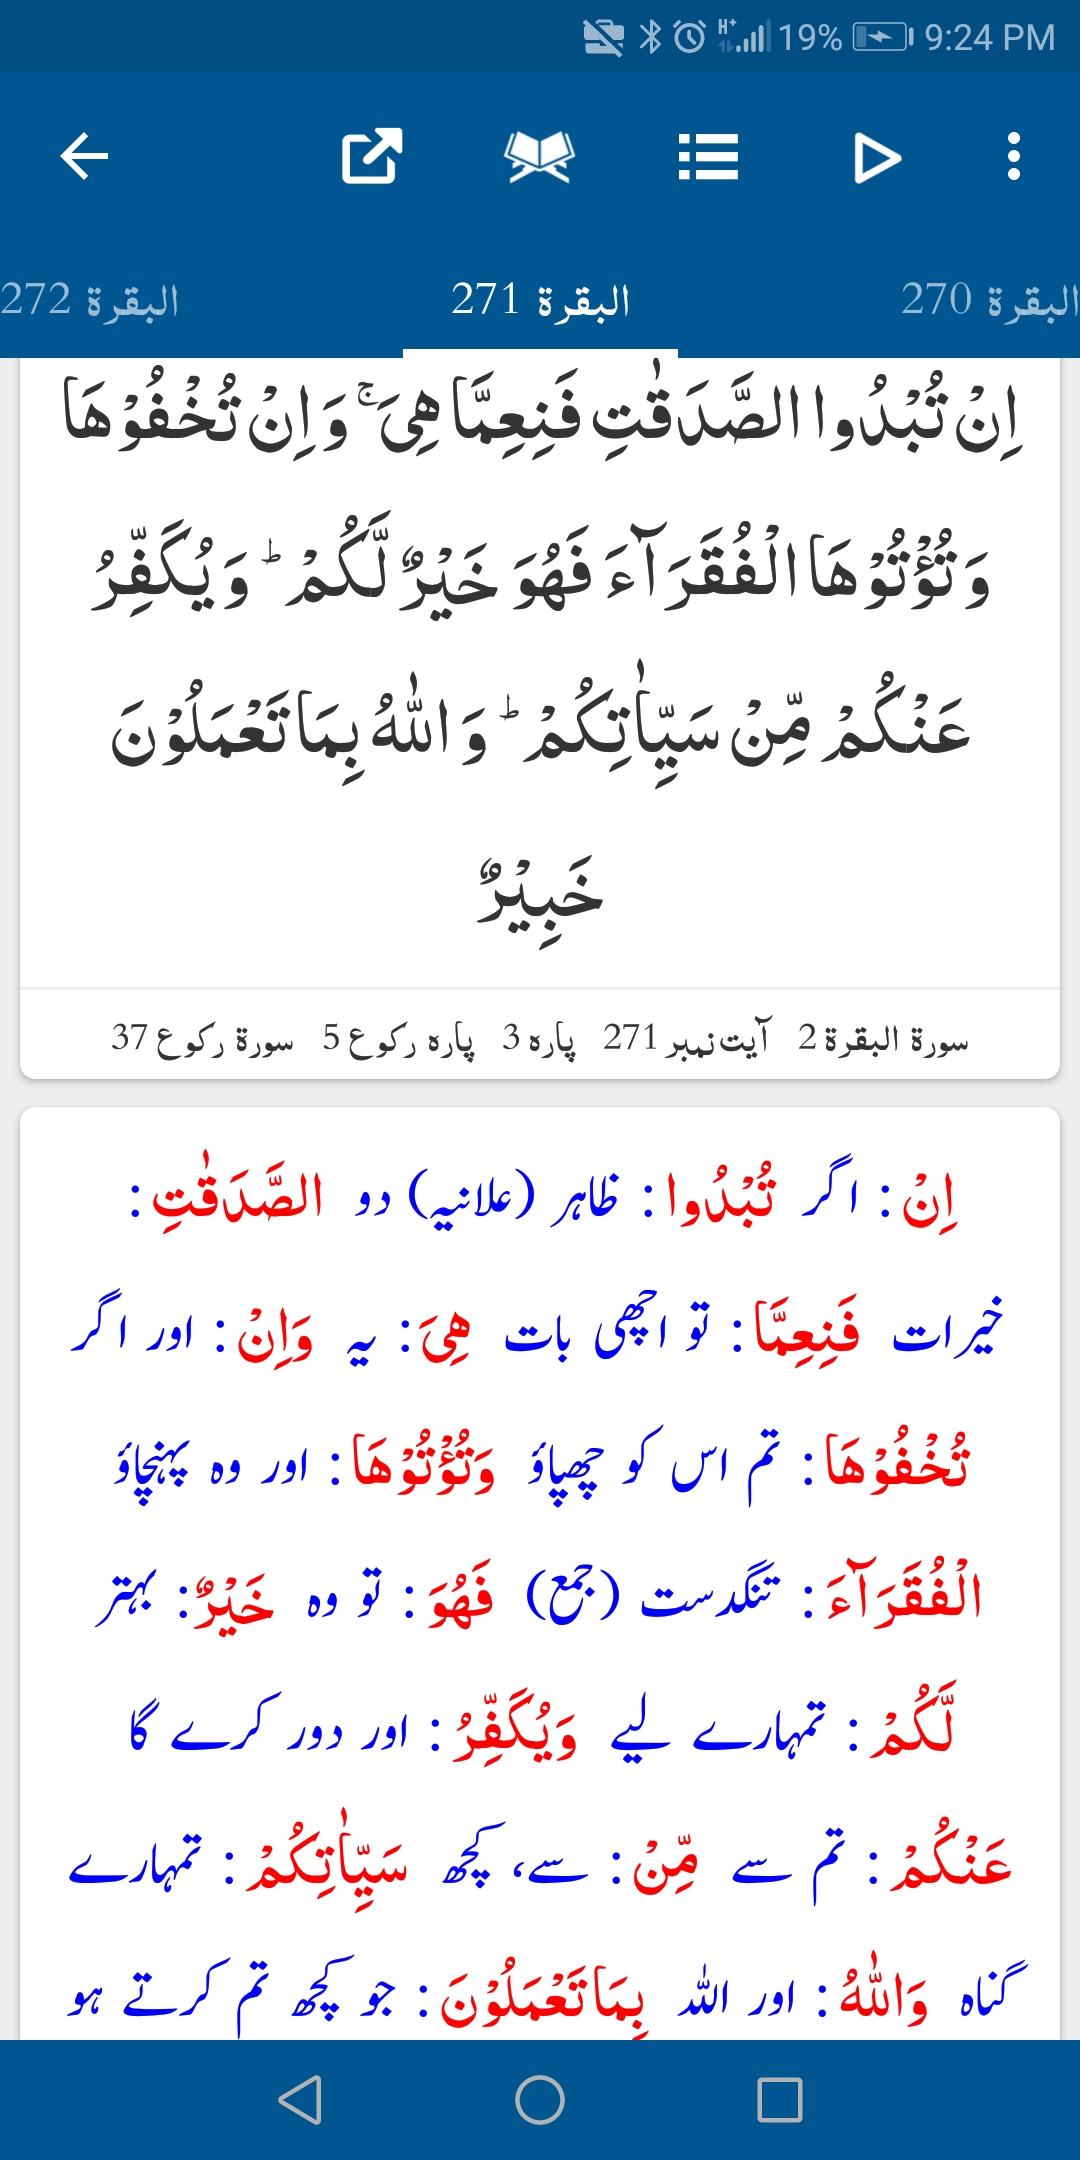 19% 9:24 PM
البقرة 270
البقرة 271
البقرة 272
اِنْ تُبْدُوا الصَّدَقٰتِ فَنِعِمَّا هِیَ ۚ وَ اِنْ تُخْفُوْهَا
وَ تُؤْتُوْهَا الْفُقَرَآءَ فَهُوَ خَیْرٌ لَّكُمْ ؕ وَ یُكَفِّرُ
عَنْكُمْ مِّنْ سَیِّاٰتِكُمْ ؕ وَ اللّٰهُ بِمَا تَعْمَلُوْنَ
خَبِیْرٌ
سورۃ البقرۃ 2 آیت نمبر 271 پارہ 3 پارہ رکوع 5 سورۃ رکوع 37
اِنْ : اگر تُبْدُوا : ظاہر (علانیہ) دو الصَّدَقٰتِ :
خیرات فَنِعِمَّا : تو اچھی بات هِیَ : یہ وَاِنْ : اور اگر
تُخْفُوْھَا : تم اس کو چھپاؤ وَتُؤْتُوْھَا : اور وہ پہنچاؤ
الْفُقَرَآءَ : تنگدست (جمع) فَھُوَ : تو وہ خَیْرٌ : بہتر
لَّكُمْ : تمہارے لیے وَیُكَفِّرُ : اور دور کرے گا
عَنْكُمْ : تم سے مِّنْ : سے، کچھ سَیِّاٰتِكُمْ : تمہارے
گناہ وَاللّٰهُ : اور اللہ بِمَا تَعْمَلُوْنَ : جو کچھ تم کرتے ہو